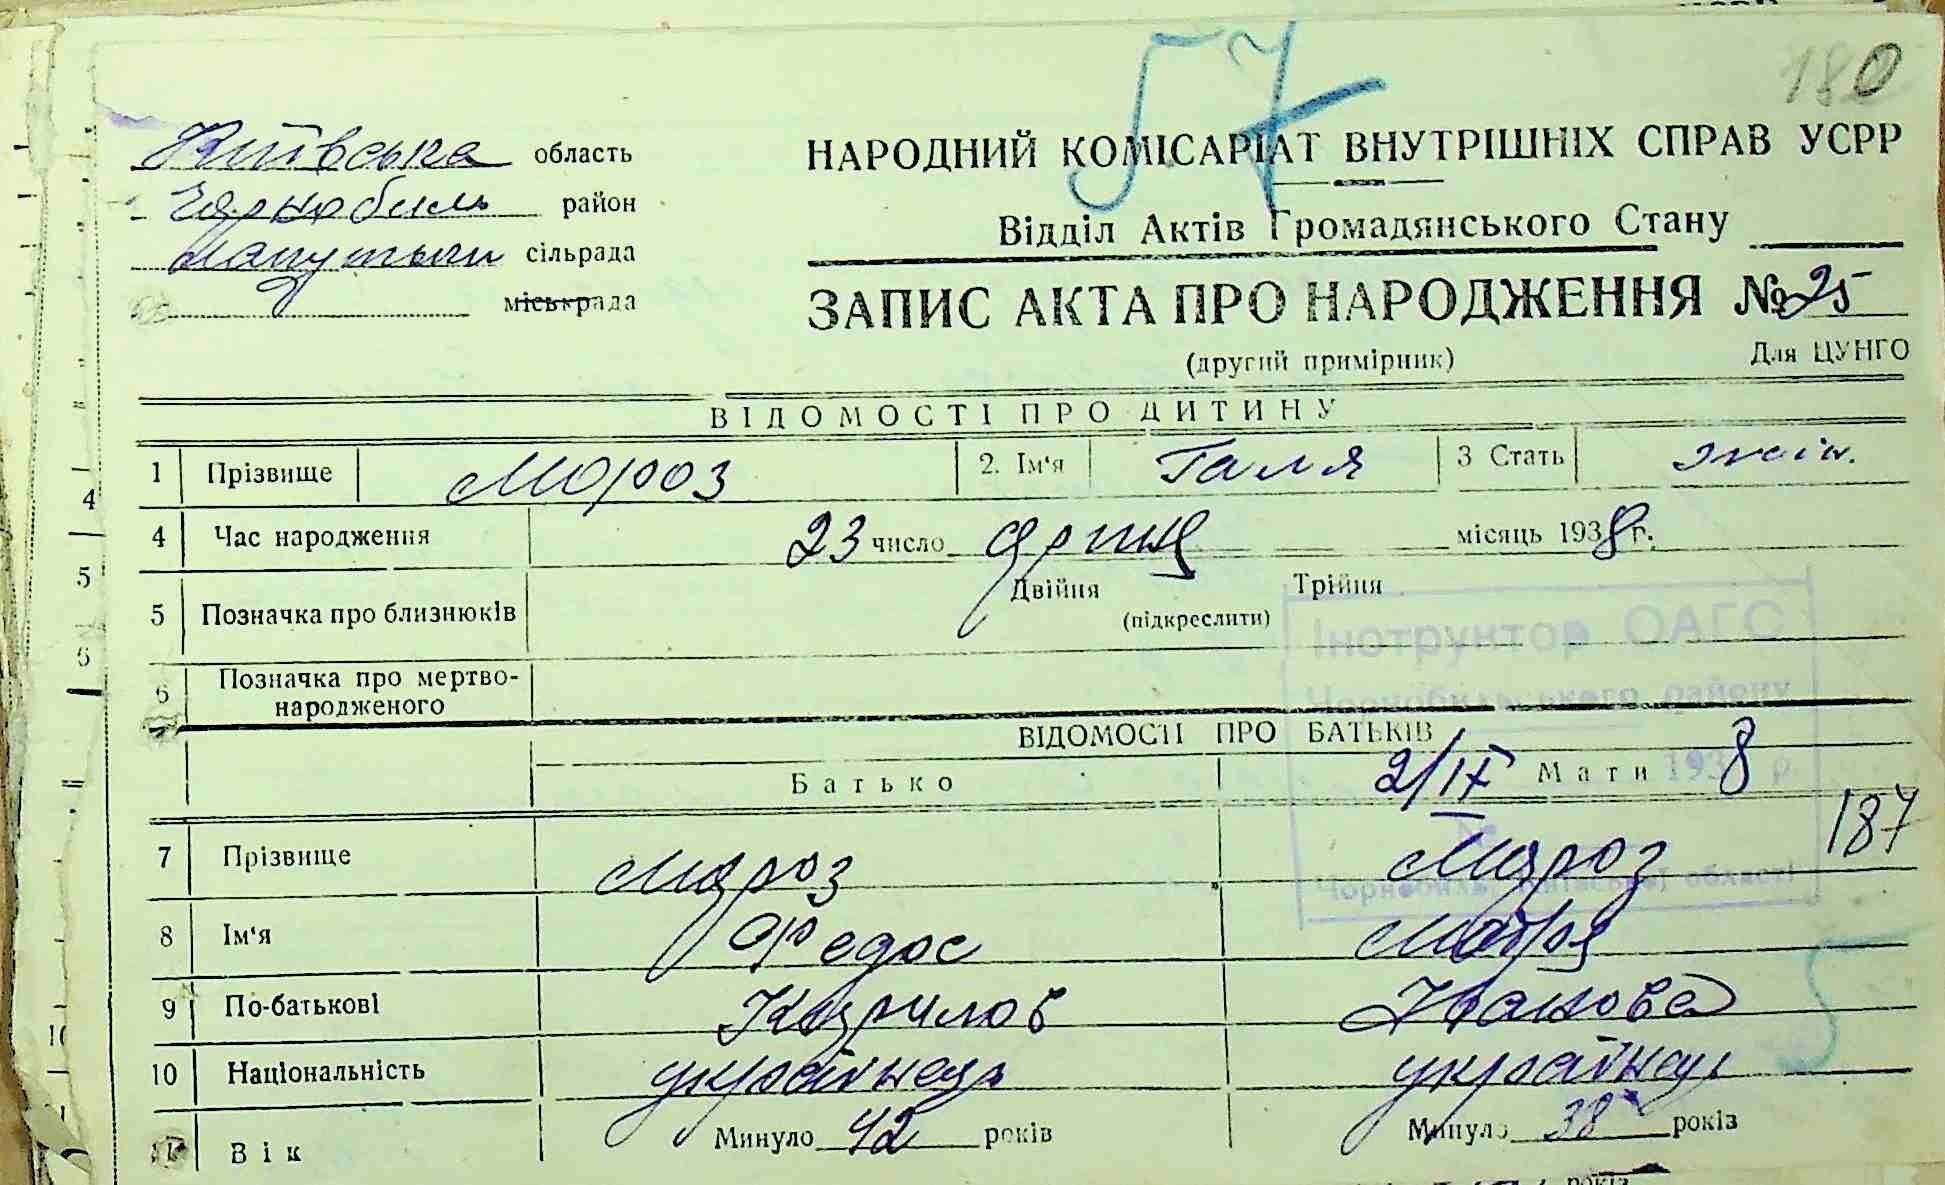 57
180
Київська область
Чорнобиль район
Лапутьки сільрада
міськрада
НАРОДНИЙ КОМІСАРІАТ ВНУТРІШНІХ СПРАВ УСРР
Відділ Актів Громадянського Стану
ЗАПИС АКТА ПРО НАРОДЖЕННЯ № 25
(другий примірник) Для ЦУНГО
ВІДОМОСТІ ПРО ДИТИНУ
1 Прізвище Мороз 2. Ім'я Галя 3 Стать жін.
4 Час народження 23 число місяць 1938 г.
5 Позначка про близнюків Двійня Трійня
(підкреслити)
Інструктор ОАГС
6 Позначка про мертвонародженого
Чорнобильського району
ВІДОМОСТІ ПРО БАТЬКІВ
Батько Мати
2/IX 1938 р.
187
7 Прізвище Мороз Мороз
Чорнобиль, Київської області
8 Ім'я Федос Мотря
9 По-батькові Кирилов Іванова
10 Національність українець українец
11 Вік Минуло 42 років Минуло 38 років